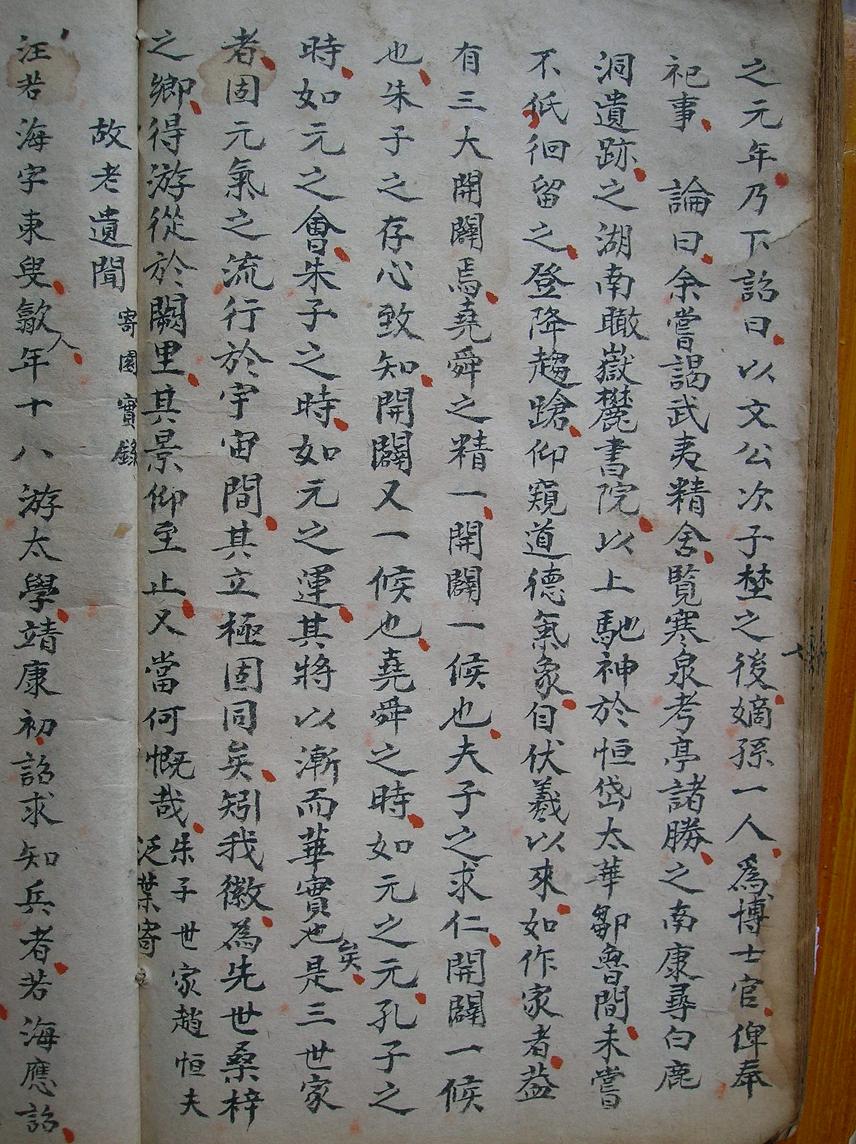 之元年乃下詔曰以文公次子埜之後嫡孫一人為博士官俾奉
祀事　論曰余嘗謁武夷精舍覽寒泉考亭諸勝之南康尋白鹿
洞遺跡之湖南瞰嶽麓書院以上馳神於恒岱太華鄒魯間未嘗
不低徊留之登降趨蹌仰窺道德氣象自伏羲以來如作家者葢
有三大開闢焉堯舜之精一開闢一候也夫子之求仁開闢一候
也朱子之存心致知開闢又一候也堯舜之時如元之元孔子之
時如元之會朱子之時如元之運其將以漸而華實也矣是三世家
者固元氣之流行於宇宙間其立極固同矣矧我徽為先世桑梓
之鄉得游從於闕里其景仰至止又當何慨哉朱子世家趙恒夫
泛葉寄
故老遺聞
寄園實錄
汪若海字東叟歙人年十八游太學靖康初詔求知兵者若海應詔